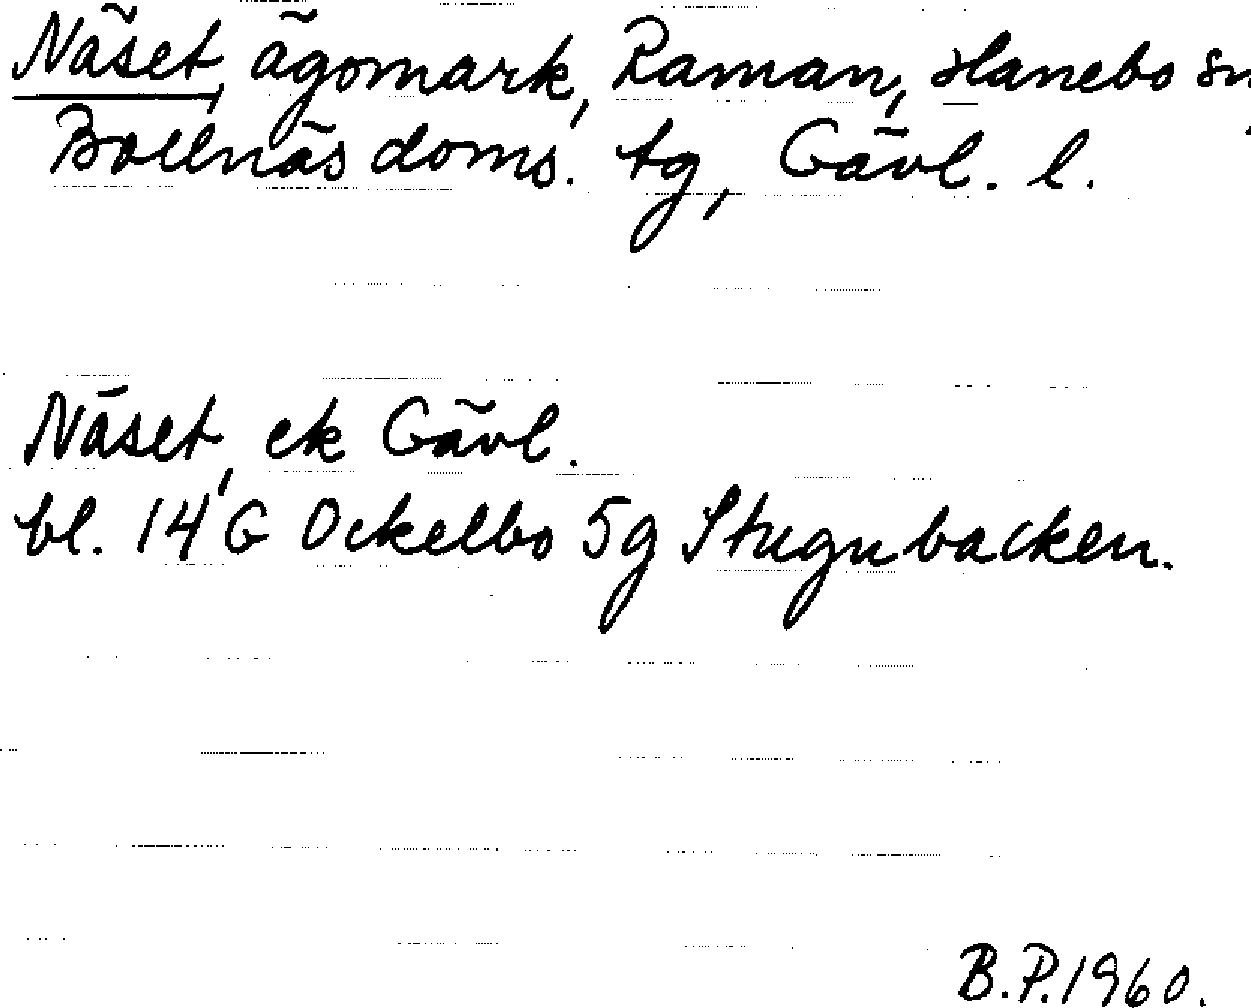 Näset, ägomark, Raman, Hanebo sn,
Bollnäs doms. tg, Gävl. l.
Näset, ek Gävl.
bl. 14 G Ockelbo 5g Stugubacken.
B.P. 1960.